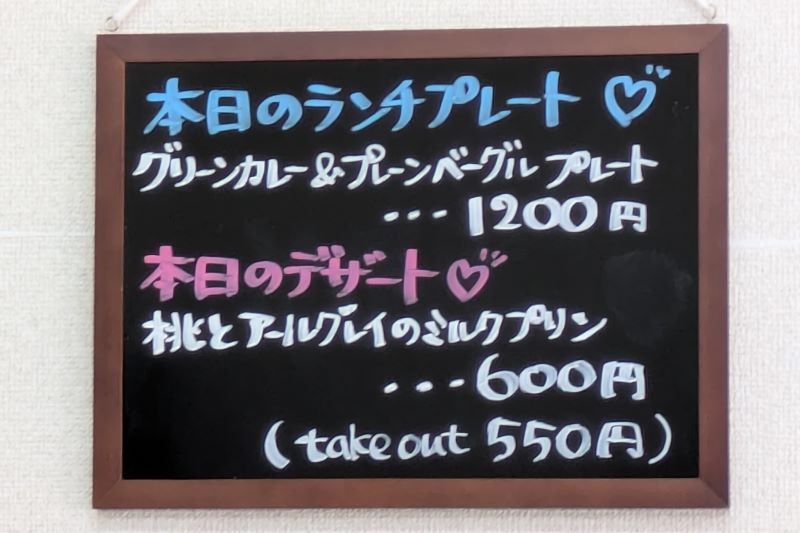 本日のランチプレート♡
グリーンカレー&プレーンベーグルプレート
・・・1200円
本日のデザート♡
桃とアールグレイのミルクプリン
・・・600円
(take out 550円)